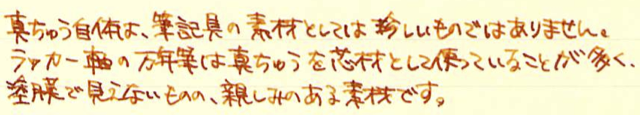 真ちゅう自体は、筆記具の素材としては珍しいものではありません。
ラッカー軸の万年筆は真ちゅうを芯材として使っていることが多く、
塗膜で見えないものの、親しみのある素材です。